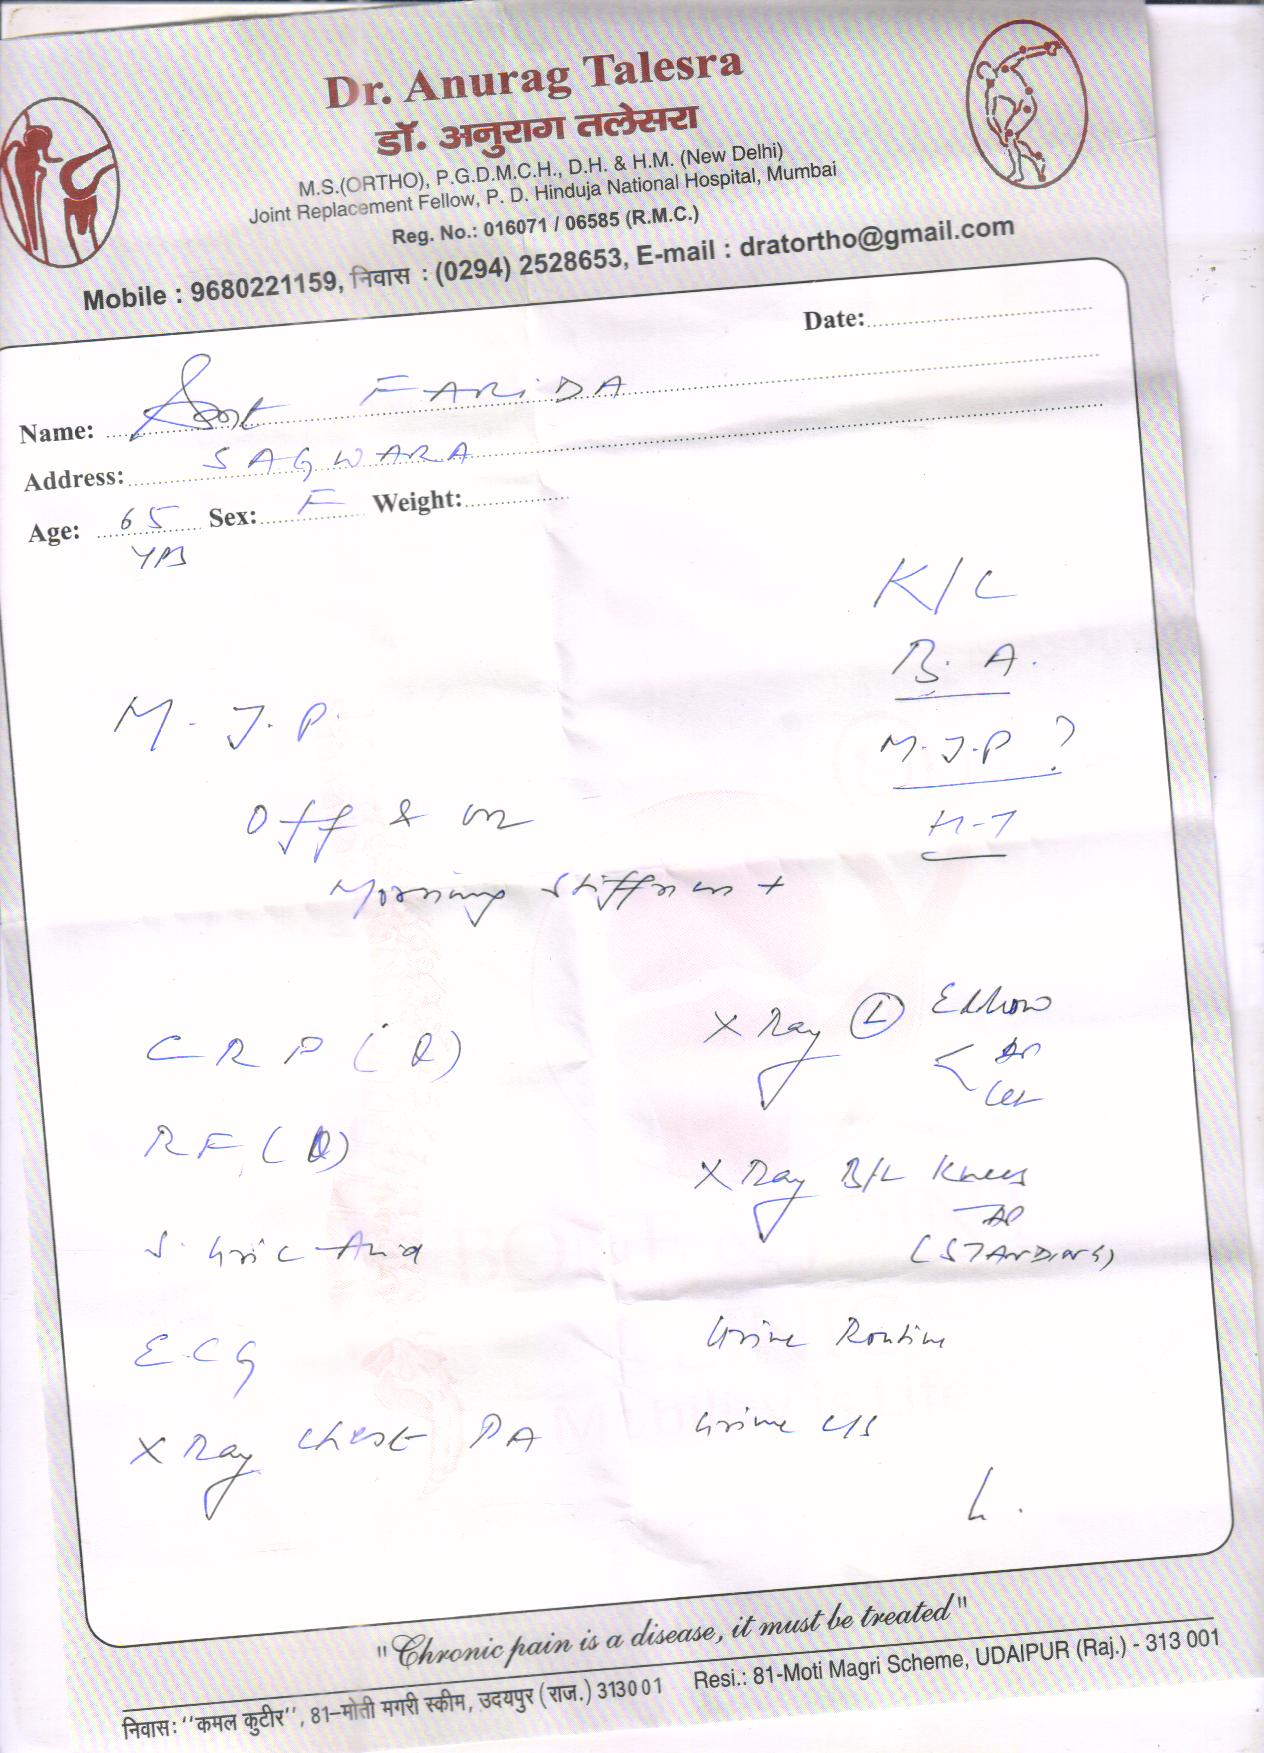 Dr. Anurag Talesra
डॉ. अनुराग तलेसरा
M.S.(ORTHO), P.G.D.M.C.H., D.H. & H.M. (New Delhi)
Joint Replacement Fellow, P. D. Hinduja National Hospital, Mumbai
Reg. No.: 016071 / 06585 (R.M.C.)
Mobile : 9680221159, निवास : (0294) 2528653, E-mail : dratortho@gmail.com
Date:
Name: FARIDA
Address: SAGWARA
Age: 65 Sex: F Weight:
YRS
K/C
B. A.
M.J.P ?
H-T
M. J. P.
Off & on
Morning Stiffness +
CRP (Q)
RF (Q)
S. Uric Acid
ECG
X Ray Chest PA
X Ray (L) Elbow
AP
Lat
X Ray B/L Knees
AP
(STANDING)
Urine Routine
Urine C/S
"Chronic pain is a disease, it must be treated"
निवास: "कमल कुटीर", 81-मोती मगरी स्कीम, उदयपुर (राज.) 313001 Resi.: 81-Moti Magri Scheme, UDAIPUR (Raj.) - 313 001